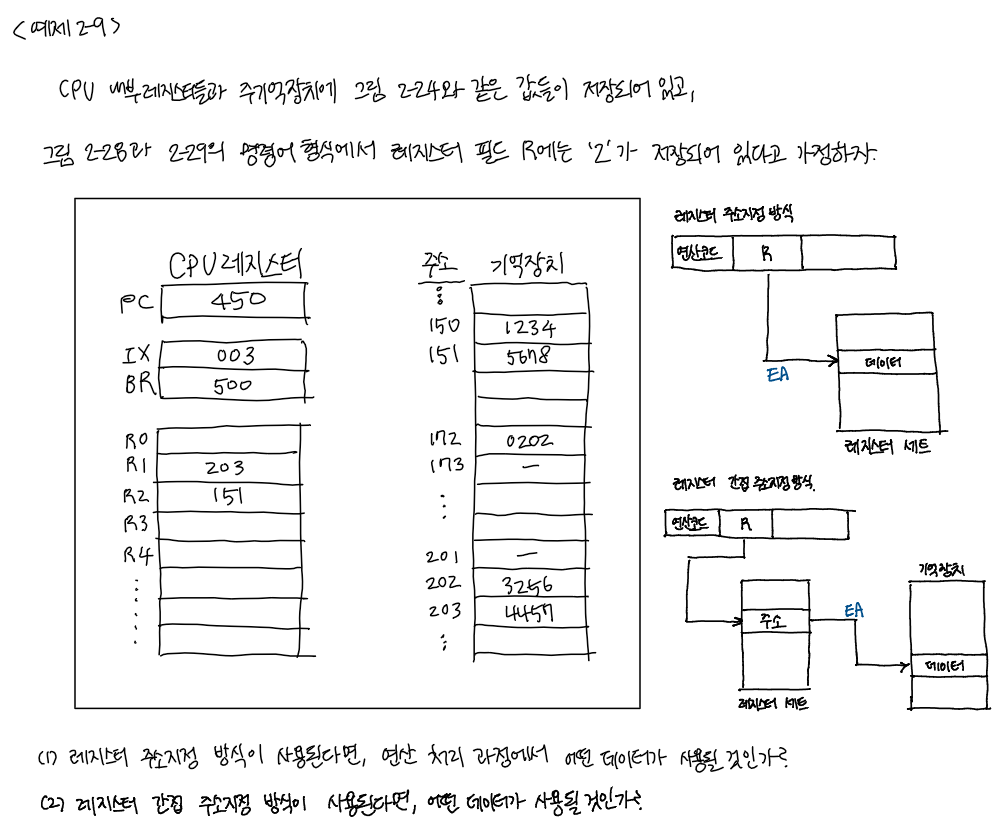 <예제 2-9>
CPU 내부 레지스터들과 주기억장치에 그림 2-24와 같은 값들이 저장되어 있고,
그림 2-28과 2-29의 명령어 형식에서 레지스터 필드 R에는 '2'가 저장되어 있다고 가정하자.
CPU 레지스터
PC 450
IX 003
BR 500
R0
R1 203
R2 151
R3
R4
주소 기억장치
150 1234
151 5678
172 0202
173 -
201 -
202 3256
203 4457
레지스터 주소지정 방식
연산코드 R
EA
데이터
레지스터 세트
레지스터 간접 주소지정 방식.
연산코드 R
주소
EA
레지스터 세트
기억장치
데이터
(1) 레지스터 주소지정 방식이 사용된다면, 연산 처리 과정에서 어떤 데이터가 사용될 것인가?
(2) 레지스터 간접 주소지정 방식이 사용된다면, 어떤 데이터가 사용될 것인가?